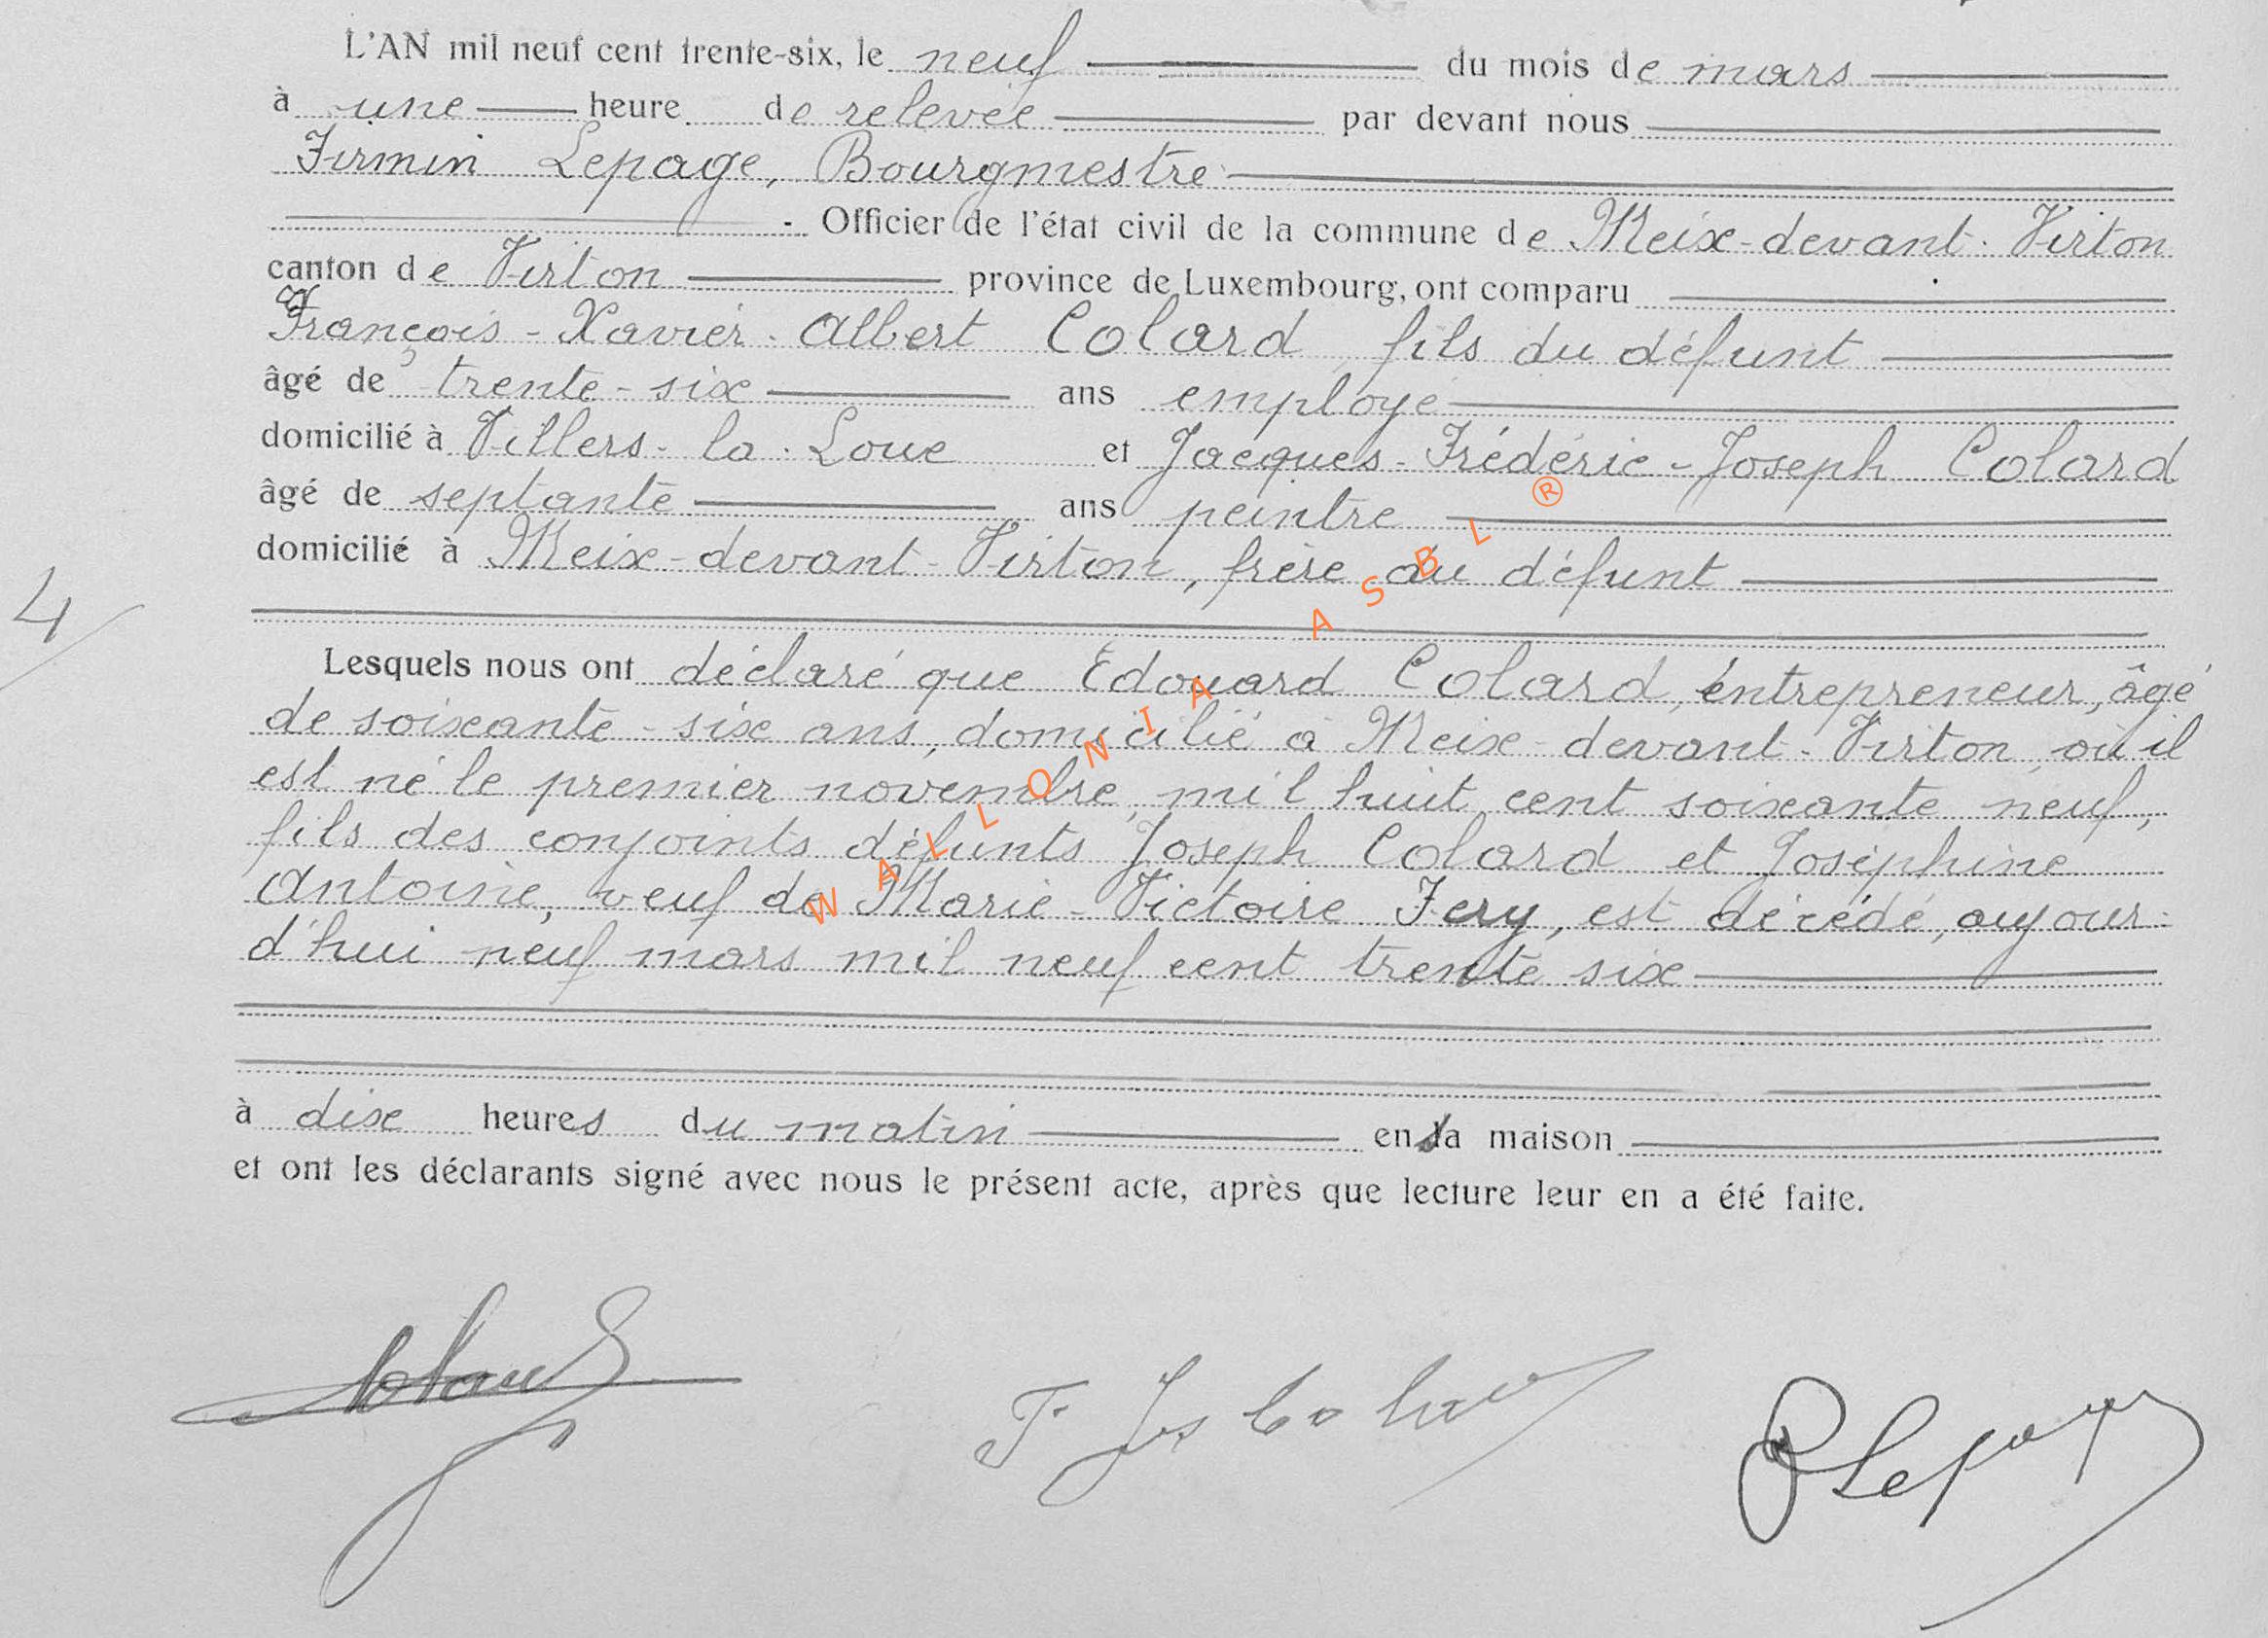 L'AN mil neuf cent trente-six, le neuf du mois de mars
à une heure de relevée par devant nous
Firmin Lepage, Bourgmestre
- Officier de l'état civil de la commune de Meix-devant-Virton
canton de Virton province de Luxembourg, ont comparu
François-Xavier-Albert Colard, fils du défunt
âgé de trente-six ans employé
domicilié à Villers-la-Loue et Jacques-Frédéric-Joseph Colard
âgé de septante ans peintre
domicilié à Meix-devant-Virton, frère du défunt
4
Lesquels nous ont déclaré que Edouard Colard, entrepreneur, âgé
de soixante-six ans, domicilié à Meix-devant-Virton, où il
est né le premier novembre, mil huit cent soixante neuf,
fils des conjoints défunts Joseph Colard et Joséphine
Antoine, veuf de Marie-Victoire Fery, est décédé, aujour-
d'hui neuf mars mil neuf cent trente six
à dix heures du matin en sa maison
et ont les déclarants signé avec nous le présent acte, après que lecture leur en a été faite.
Colard
F Jos Colard
F Lepage
WALLONIA ASBL ®